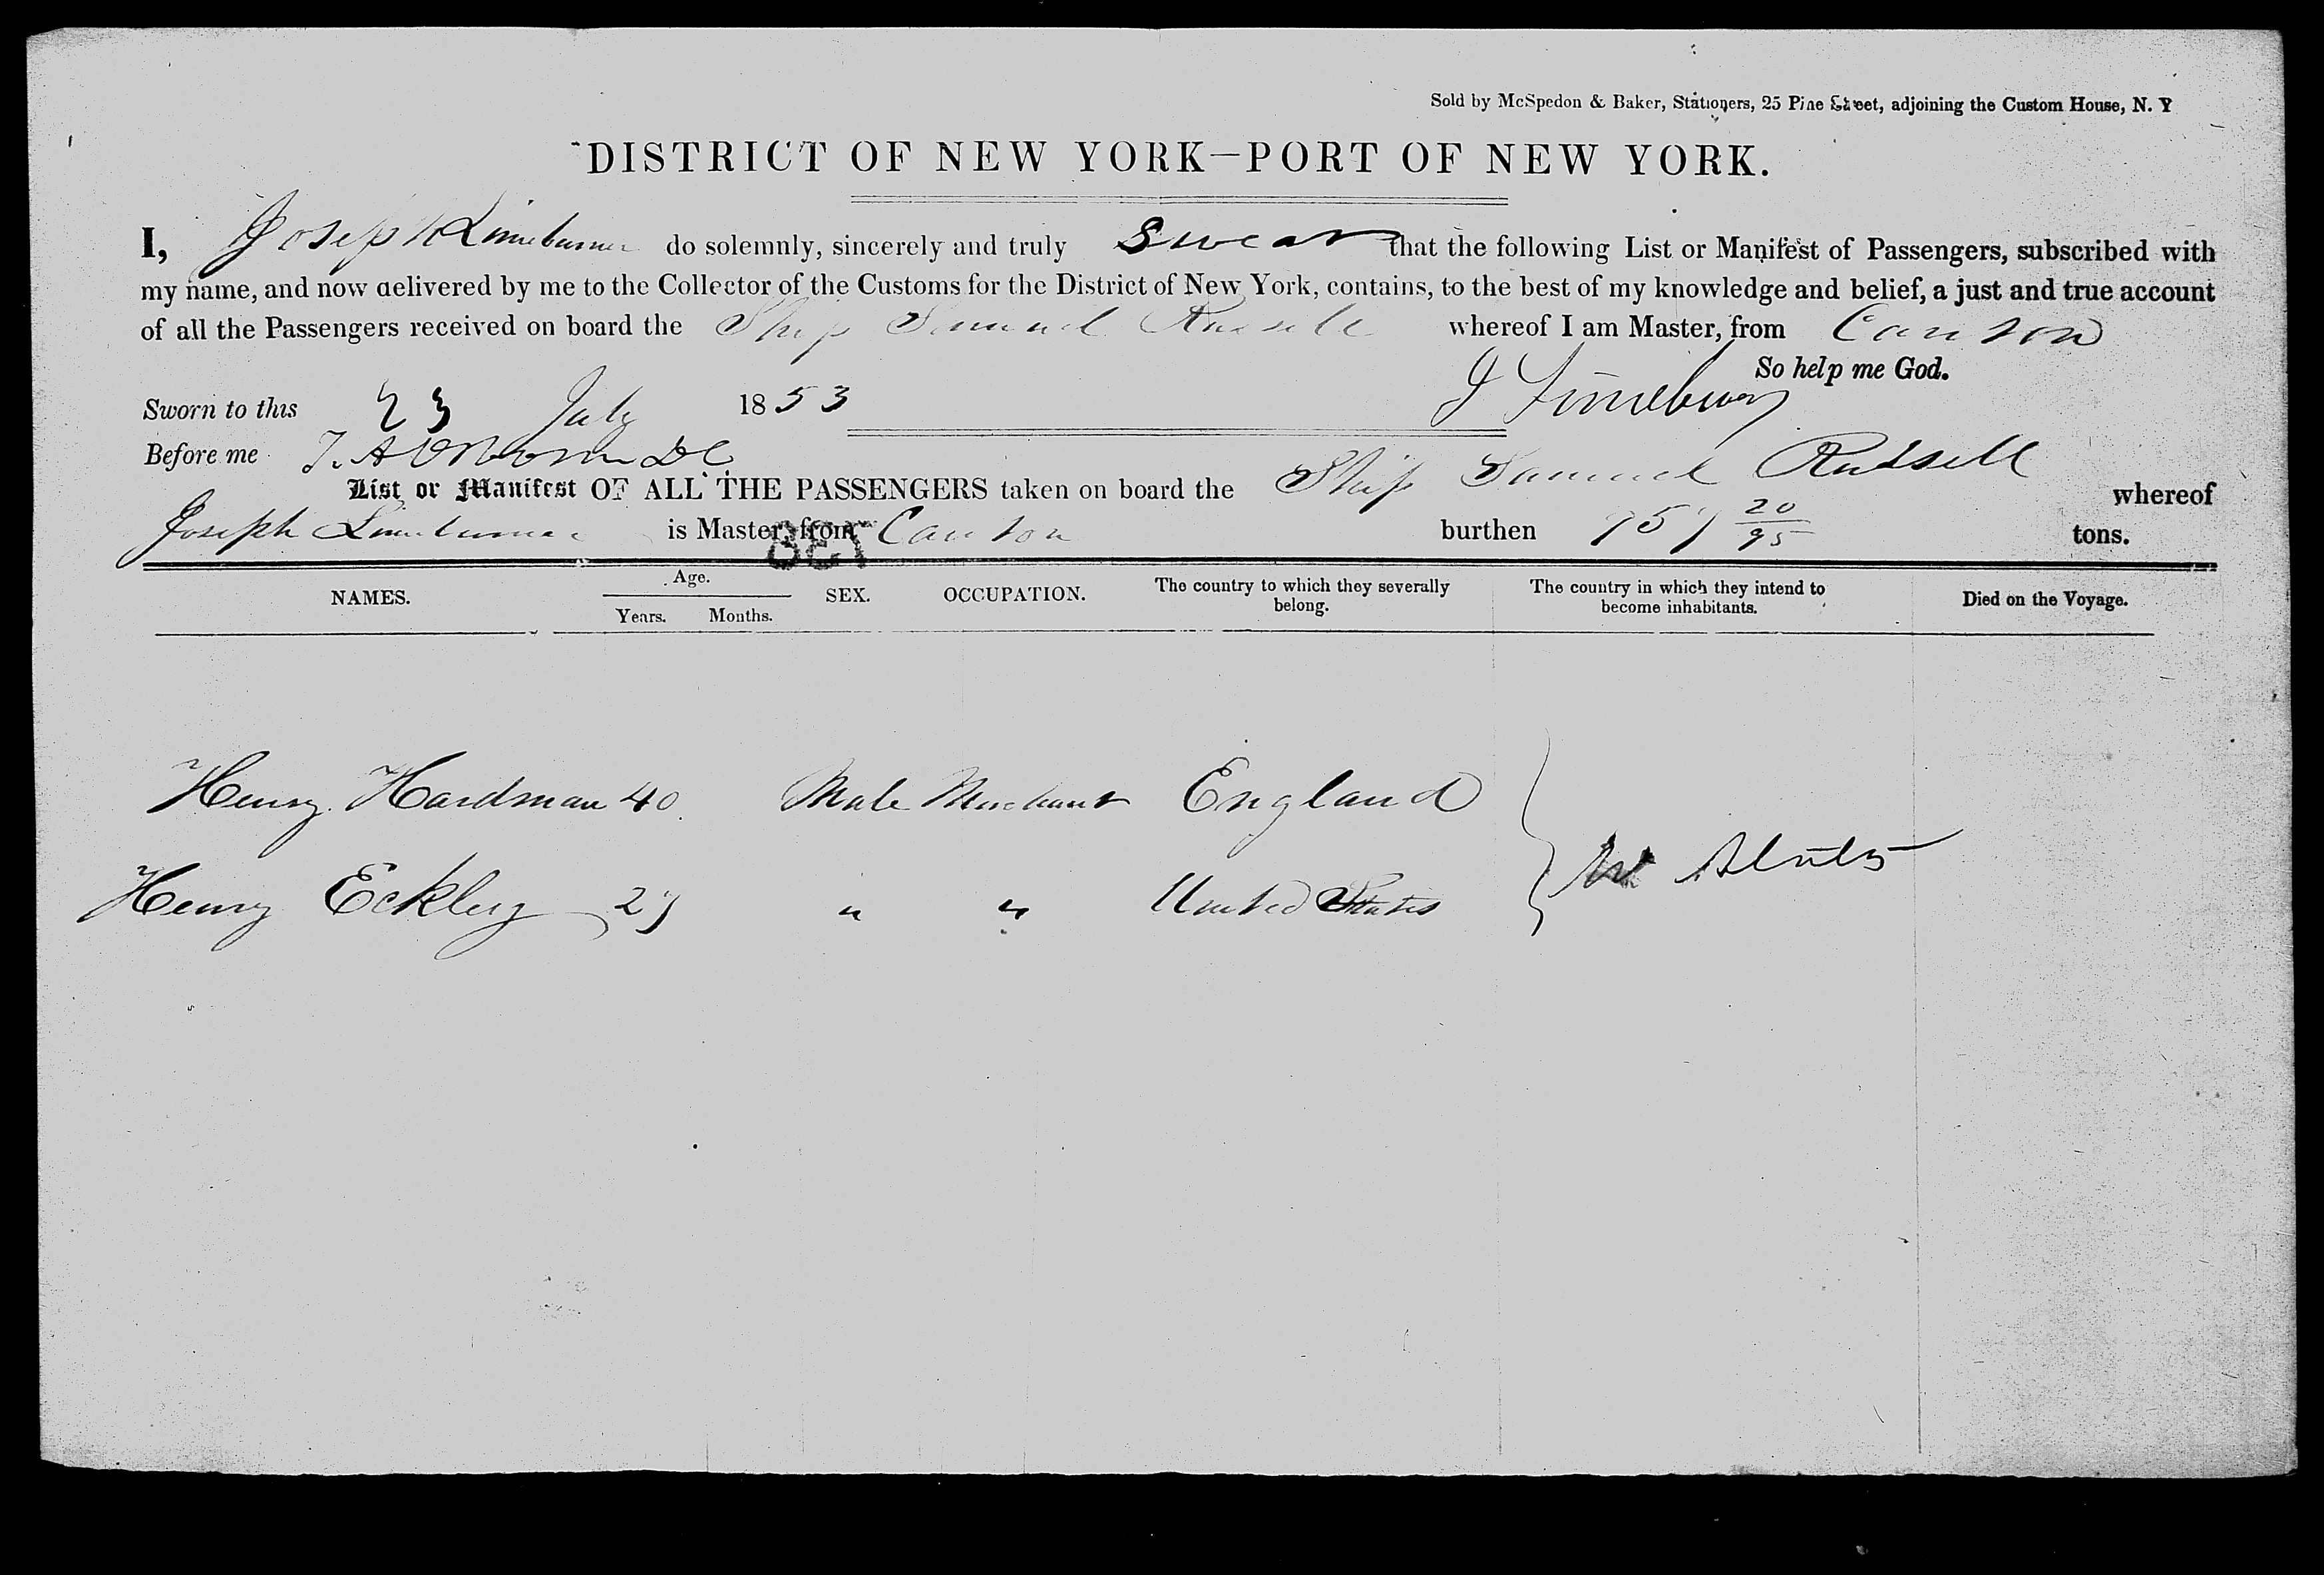 Sold by McSpedon & Baker, Stationers, 25 Pine Street, adjoining the Custom House, N. Y
DISTRICT OF NEW YORK—PORT OF NEW YORK.
I, Joseph Limeburner do solemnly, sincerely and truly Swear that the following List or Manifest of Passengers, subscribed with
my name, and now delivered by me to the Collector of the Customs for the District of New York, contains, to the best of my knowledge and belief, a just and true account
of all the Passengers received on board the Ship Samuel Russell whereof I am Master, from Canton
So help me God.
Sworn to this 23 July 1853 J Limeburner
Before me
List or Manifest OF ALL THE PASSENGERS taken on board the Ship Samuel Russell whereof
Joseph Limeburner is Master, from Canton burthen 957 20/95 tons.
NAMES. Age. Years. Months. SEX. OCCUPATION. The country to which they severally belong. The country in which they intend to become inhabitants. Died on the Voyage.
Henry Hardman 40 Male Merchant England
Henry Eckley 27 " " United States
States